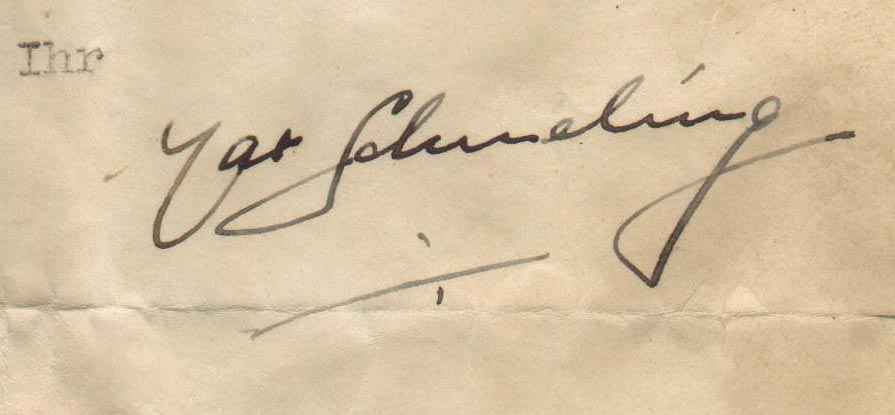 Ihr
Max Schmeling